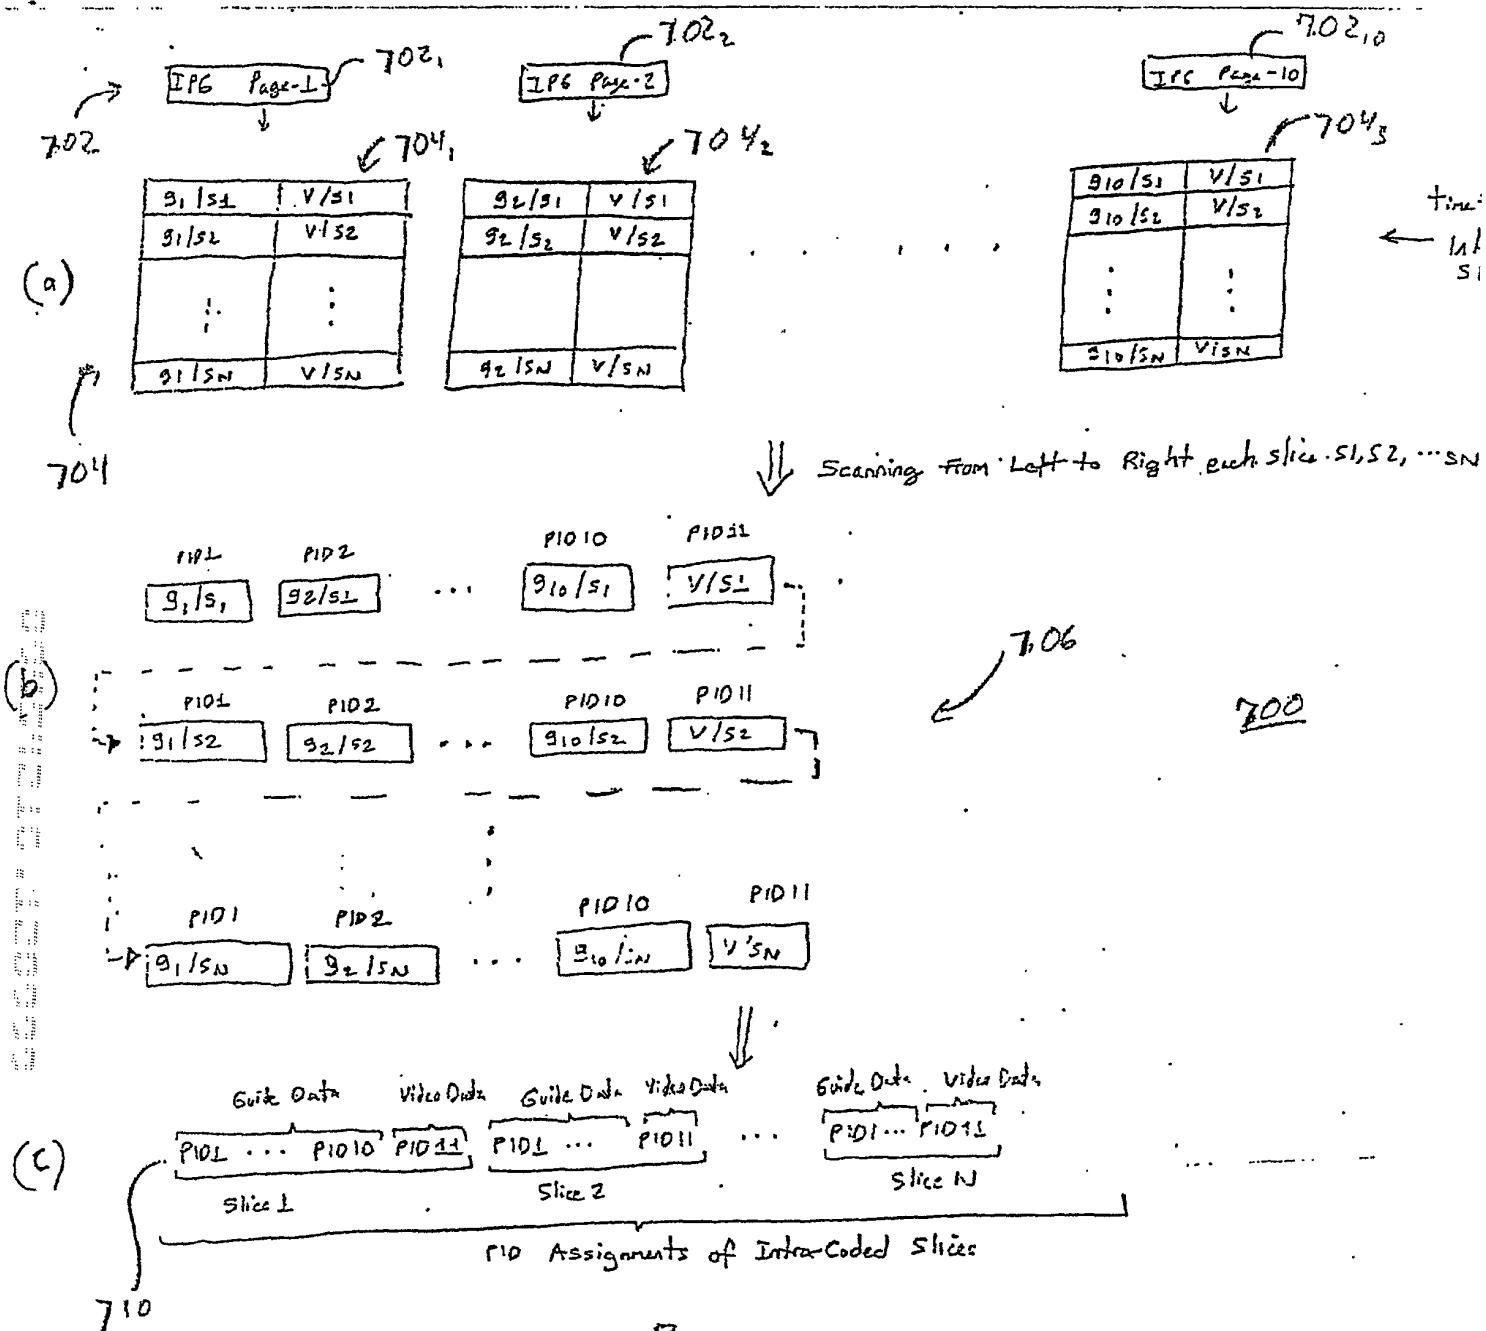 702₁ 702₂ 702₁₀
IPG Page-1 IPG Page-2 IPG Page-10
702
704₁ 704₂ 704₃
g₁/s1 V/s1 g2/s1 V/s1 g10/s1 V/s1
g1/s2 V/s2 g2/s2 V/s2 g10/s2 V/s2
(a)
g1/sN V/sN g2/sN V/sN g10/sN V/sN
704
Scanning From Left to Right each slice S1, S2, ... SN
PID1 PID2 PID10 PID11
g₁/s₁ g2/s1 ... g10/s1 V/S1
706
(b)
PID1 PID2 PID10 PID11
g1/s2 g2/s2 ... g10/s2 V/s2
700
PID1 PID2 PID10 PID11
g1/sN g2/sN ... g10/sN V/sN
Guide Data Video Data Guide Data Video Data Guide Data Video Data
(c)
PID1 ... PID10 PID11 PID1 ... PID11 ... PID1 ... PID11
Slice 1 Slice 2 Slice N
PID Assignments of Intra-Coded Slices
710